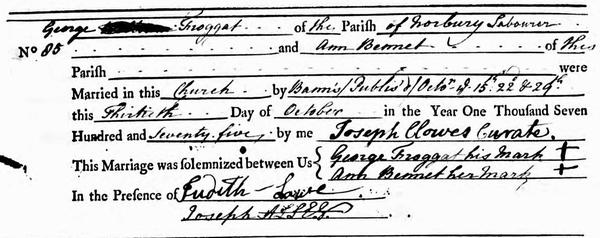 George Froggat of the Parish of Norbury Labourer
No 85 and Ann Bennet of this
Parish were
Married in this Church by Banns Publis'd Octor 15th 22d & 29th
this Thirtieth Day of October in the Year One Thousand Seven
Hundred and Seventy five by me Joseph Clowes Curate.
This Marriage was solemnized between Us { George Froggat his Mark +
Ann Bennet her Mark +
In the Presence of Judith
Joseph